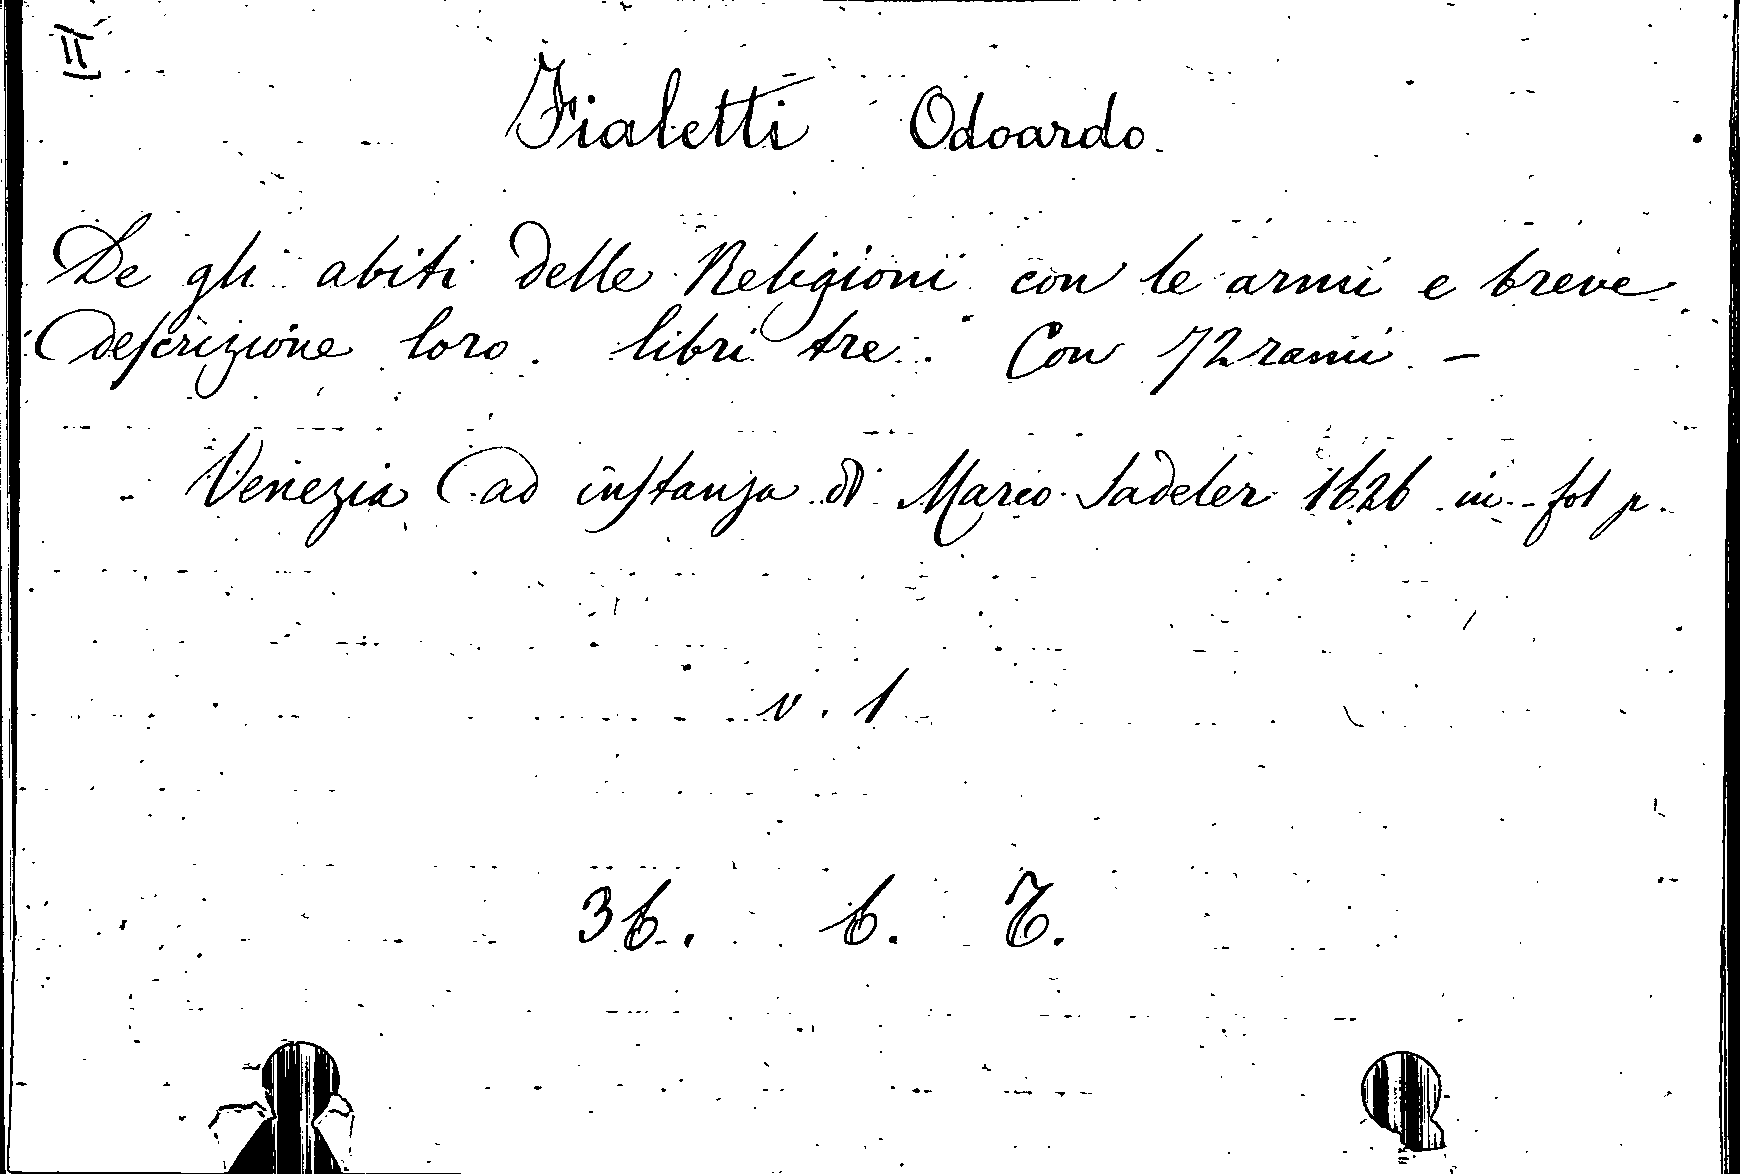 Fialetti Odoardo.
De gli abiti delle Religioni con le armi e breve
Descrizione loro. libri tre. Con 72 rami. -
- Venezia ad instanza di Marco Sadeler 1626 in-fol p.
v. 1
36. 6. 7.